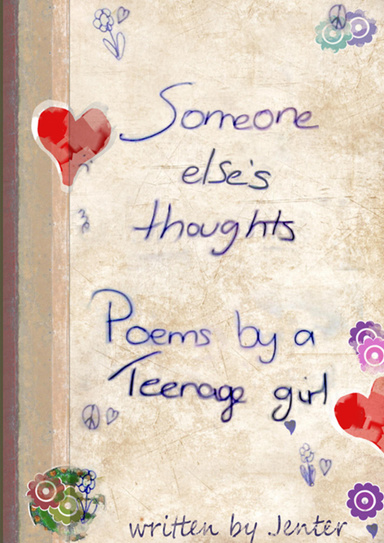 Someone
else's
thoughts
Poems by a
Teenage girl
written by Jenter